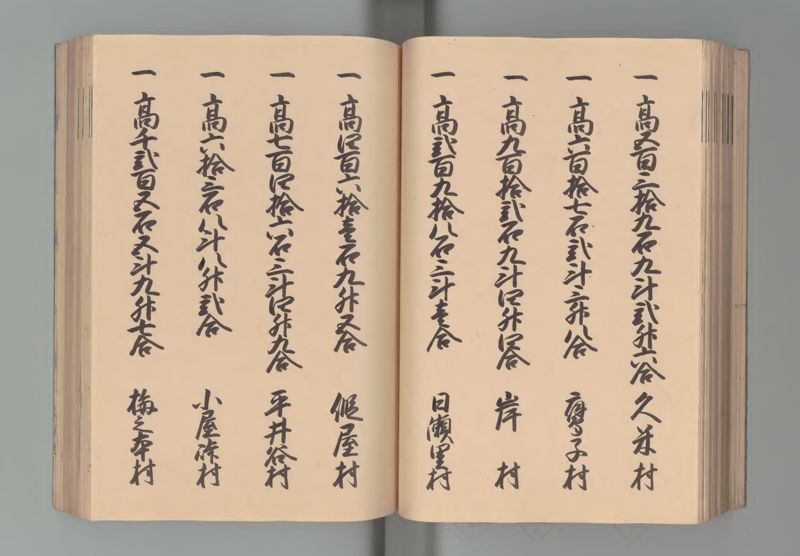 一 高五百三拾九石九斗弐升六合 久米村
一 高六百拾七石弐斗三升八合 寳子村
一 高九百拾弐石九斗四升四合 岸村
一 高弐百九拾八石三斗壱合 日瀬里村
一 高四百六拾壱石九升五合 仮屋村
一 高七百四拾六石三斗四升九合 平井谷村
一 高六拾三石八斗八升弐合 小屋味村
一 高千弐百五石五斗九升七合 梅之本村